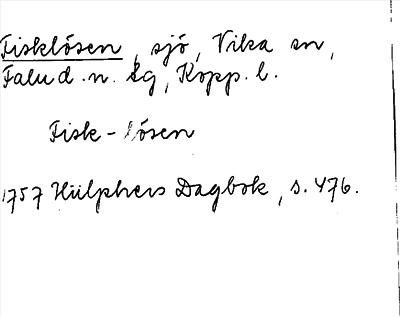 Fisklösen, sjö, Vika sn,
Falu d.n. lg, Kopp. l.
Fisk-lösen
1757 Hülphers Dagbok, s. 476.